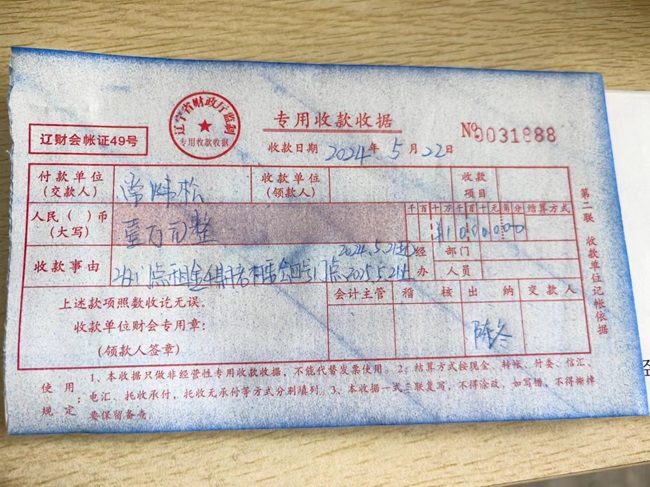 辽宁省财政厅监制
专用收款收据
专用收款收据
辽财会帐证49号
收款日期 2024年 5月 22日
№0031888
付款单位(交款人) 常 松 收款单位(领款人) 收款项目
人民( )币(大写) 壹万元整 千百十万千百十元角分 结算方式
¥1000000
收款事由 门点租金 2024.5.21 2025.5.21 经办 部门 人员
上述款项照数收讫无误。
收款单位财会专用章:
(领款人签章)
会计主管 稽核 出纳 交款人
陈冬
第二联 收款单位记帐依据
使用规定: 1、本收据只做非经营性专用收款收据,不能代替发票使用。2、结算方式按现金、转帐、付委、信汇、
电汇、托收承付,托收无承付等方式分别填列。3、本收据一式三联复写,不得涂改,如写错,不得撕掉
要保留备查。